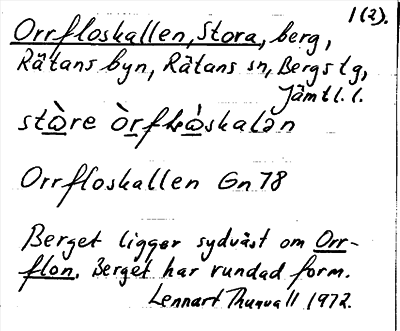 1(2).
Orrfloskallen, Stora, berg,
Rätans byn, Rätans sn, Bergs tg,
Jämtl. l.
Orrfloskallen Gn 78
Berget ligger sydväst om Orr-
flon. Berget har rundad form.
Lennart Thunvall 1972.